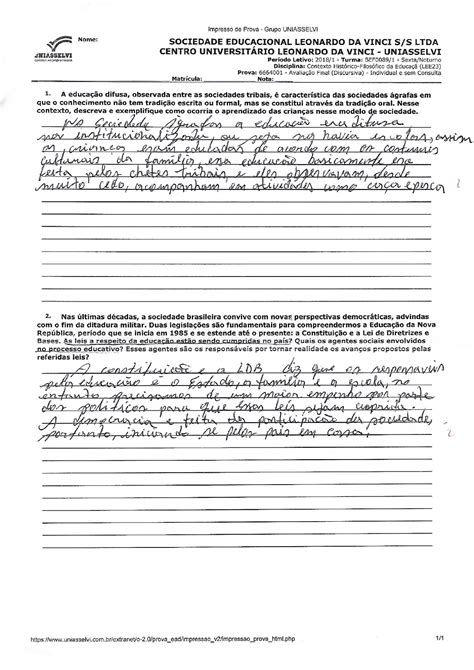 Impresso de Prova - Grupo UNIASSELVI
UNIASSELVI
Nome:
SOCIEDADE EDUCACIONAL LEONARDO DA VINCI S/S LTDA
CENTRO UNIVERSITÁRIO LEONARDO DA VINCI - UNIASSELVI
Período Letivo: 2018/1 - Turma: BEF0089/1 - Sexta/Noturno
Disciplina: Contexto Histórico-Filosófico da Educação (LEE22)
Prova: 6664001 - Avaliação Final (Discursiva) - Individual e sem Consulta
Matrícula: Nota:
1. A educação difusa, observada entre as sociedades tribais, é característica das sociedades ágrafas em
que o conhecimento não tem tradição escrita ou formal, mas se constitui através da tradição oral. Nesse
contexto, descreva e exemplifique como ocorria o aprendizado das crianças nesse modelo de sociedade.
Na sociedade ágrafas a educação era difusa
não institucionalizada, ou seja não havia escolas, assim
as crianças eram educadas de acordo com os costumes
culturais da família, essa educação basicamente era
feita pelos chefes tribais e eles observavam, desde
muito cedo, acompanham em atividades como caça e pesca
2. Nas últimas décadas, a sociedade brasileira convive com novas perspectivas democráticas, advindas
com o fim da ditadura militar. Duas legislações são fundamentais para compreendermos a Educação da Nova
República, período que se inicia em 1985 e se estende até o presente: a Constituição e a Lei de Diretrizes e
Bases. As leis a respeito da educação estão sendo cumpridas no país? Quais os agentes sociais envolvidos
no processo educativo? Esses agentes são os responsáveis por tornar realidade os avanços propostos pelas
referidas leis?
A constituição e a LDB diz que os responsáveis
pelos educação é o Estado, a família e a escola, no
entanto precisamos de um maior empenho por parte
dos políticos para que essas leis sejam cumprida.
A democracia e feita da participação da sociedade,
portanto, iniciando se pelos pais em casa.
https://www.uniasselvi.com.br/extranet/o-2.0/prova_ead/impressao_v2/impressao_prova_html.php
1/1